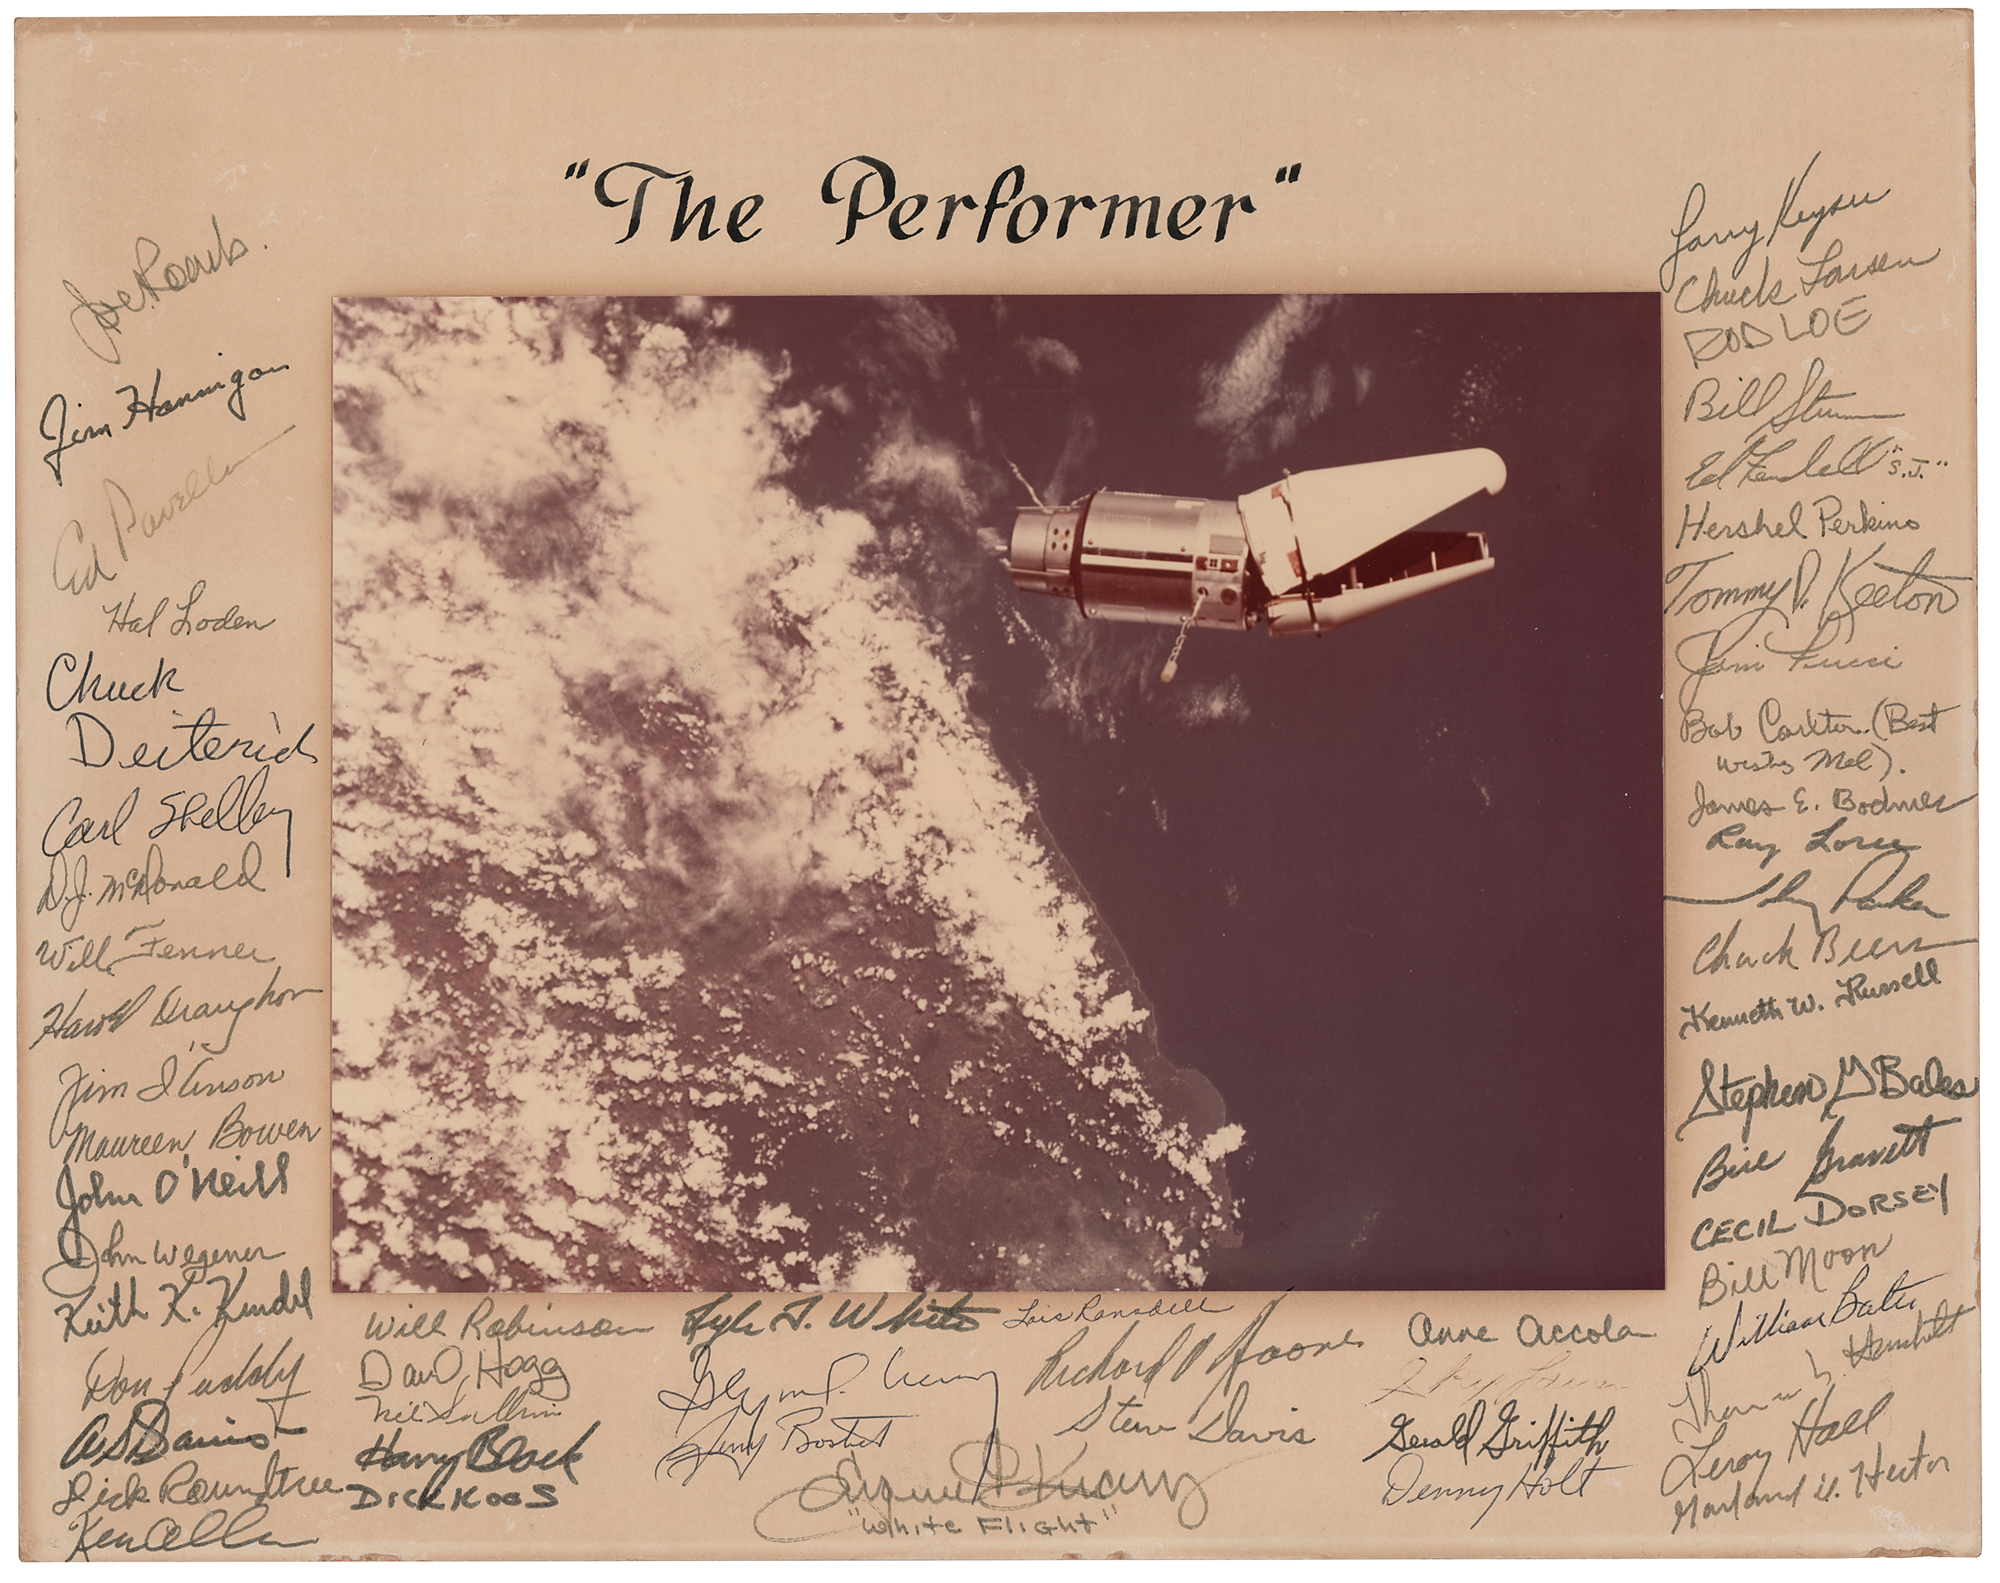 "The Performer"
Joe Roach.
Jim Hannigan
Ed Pavelka
Hal Loden
Chuck
Deiterich
Carl Shelley
D.J. McDonald
Will Fenner
Harold Draughon
Jim I'Anson
Maureen Bowen
John O'Neill
John Wegener
Keith K. Kundel
Don Puddy
Dick Roundtree
Ken
Will Robinson
David Hogg
Neil
Harry Black
DICK KOOS
Lyle T. White
Glynn Lunney
Jerry Bostick
Lois Ransdell
Richard
Steve Davis
Eugene F Kranz
"White Flight"
Anne Accola
Gerald Griffith
Denny Holt
Larry Keyser
Chuck Larsen
ROD LOE
Bill
Ed Fendell "S.J."
Hershel Perkins
Tommy D. Keeton
Jim Fucci
Bob Carlton. (Best
wishes Mel).
James E. Bodmer
Ray Loree
Parker
Chuck
Kenneth W. Russell
Stephen G Bales
Bill Gravett
CECIL DORSEY
Bill Moon
William Bates
Leroy Hall
Garland